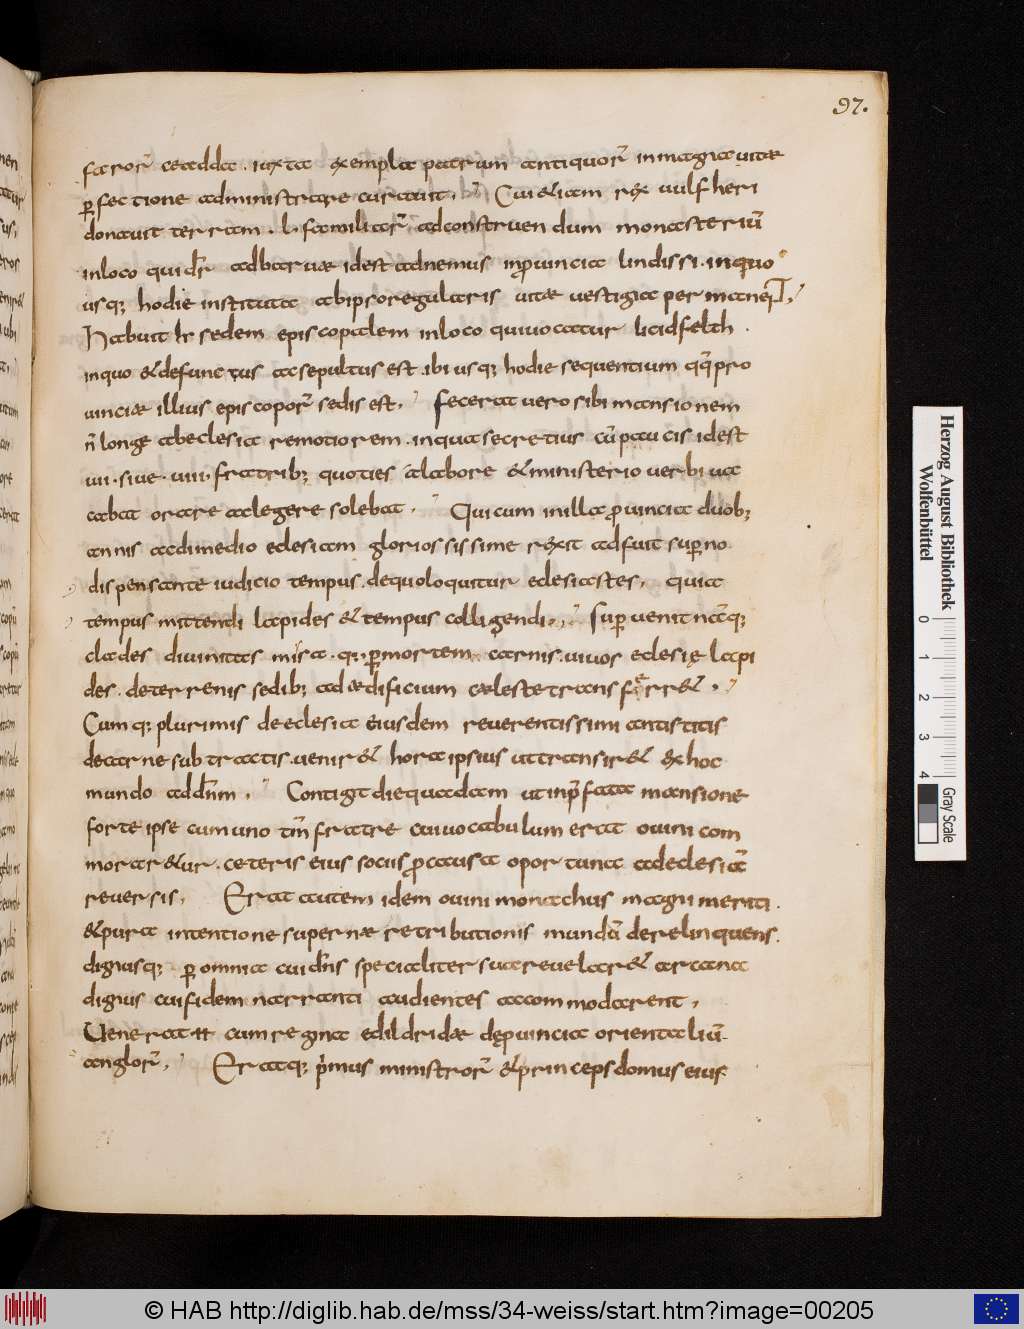 97.
sacrorũ ceadda. iuxta exempla patrum antiquorũ inmagna uitæ
ꝑfectione administrare curauit. Cui &iam rex uulfheri
donauit terram .l. familiarũ adconstruendum monasteriũ
inloco quidr̃ adbaruæ idest adnemus inꝓuincia lindissi. inquo
usq; hodie instituta abipso regularis uitæ uestigia permanent,
Habuit hr̃ sedem episcopalem inloco quiuocatur licidfelth.
inquo &defunctus acsepultus est. ibi usq; hodie sequentium qq̃ pro
uinciæ illius episcoporũ sedis est, fecerat uero sibi mansionem
ñ longe abeclesia remotiorem. inqua secretius cũ paucis idest
uii. siue. uiii. fratrib; quoties alabore &ministerio uerbi ua
cabat orare aclegere solebat. Qui cum inilla ꝓuincia duob;
annis acdimedio eclesiam gloriossissime rexit adfuit suꝑno
dispensante iudicio tempus. dequoloquitur eclesiastes, quia
tempus mittendi lapides &tempus colligendi., Suꝑuenit nãq;
clades diuinitas misa. q; ꝑmortem carnis. uiuos eclesię lapi
des. deterrenis sedib; ad ædificium cæleste transferr&.
Cumq; plurimis deeclesia eiusdem reuerentissimi antistitis
decarne subtractis. uenir& hora ipsius uttransir& exhoc
mundo addñm. Contigit diequadam utinp̃fata mansione
forte ipse cum uno tm̃ fratre cuiuocabulum erat ouini com
morar&ur. ceteris eius sociis ꝓcausa oportuna adeclesiã
reuersis, Erat autem idem ouini monachus magni meriti.
&pura intentione supernæ retributionis mundũ derelinquens.
dignusq; ꝑ omnia cui dñs specialiter sua reuelar& arcana
dignus cui fidem narranti audientes accommodarent,
Uenerat H cum regina edildridæ deꝓuincia orientaliũ.
anglorũ, Eratq; p̃mus ministrorũ &princeps domus eius
Herzog August Bibliothek
Wolfenbüttel
0 1 2 3 4
Gray Scale
© HAB http://diglib.hab.de/mss/34-weiss/start.htm?image=00205